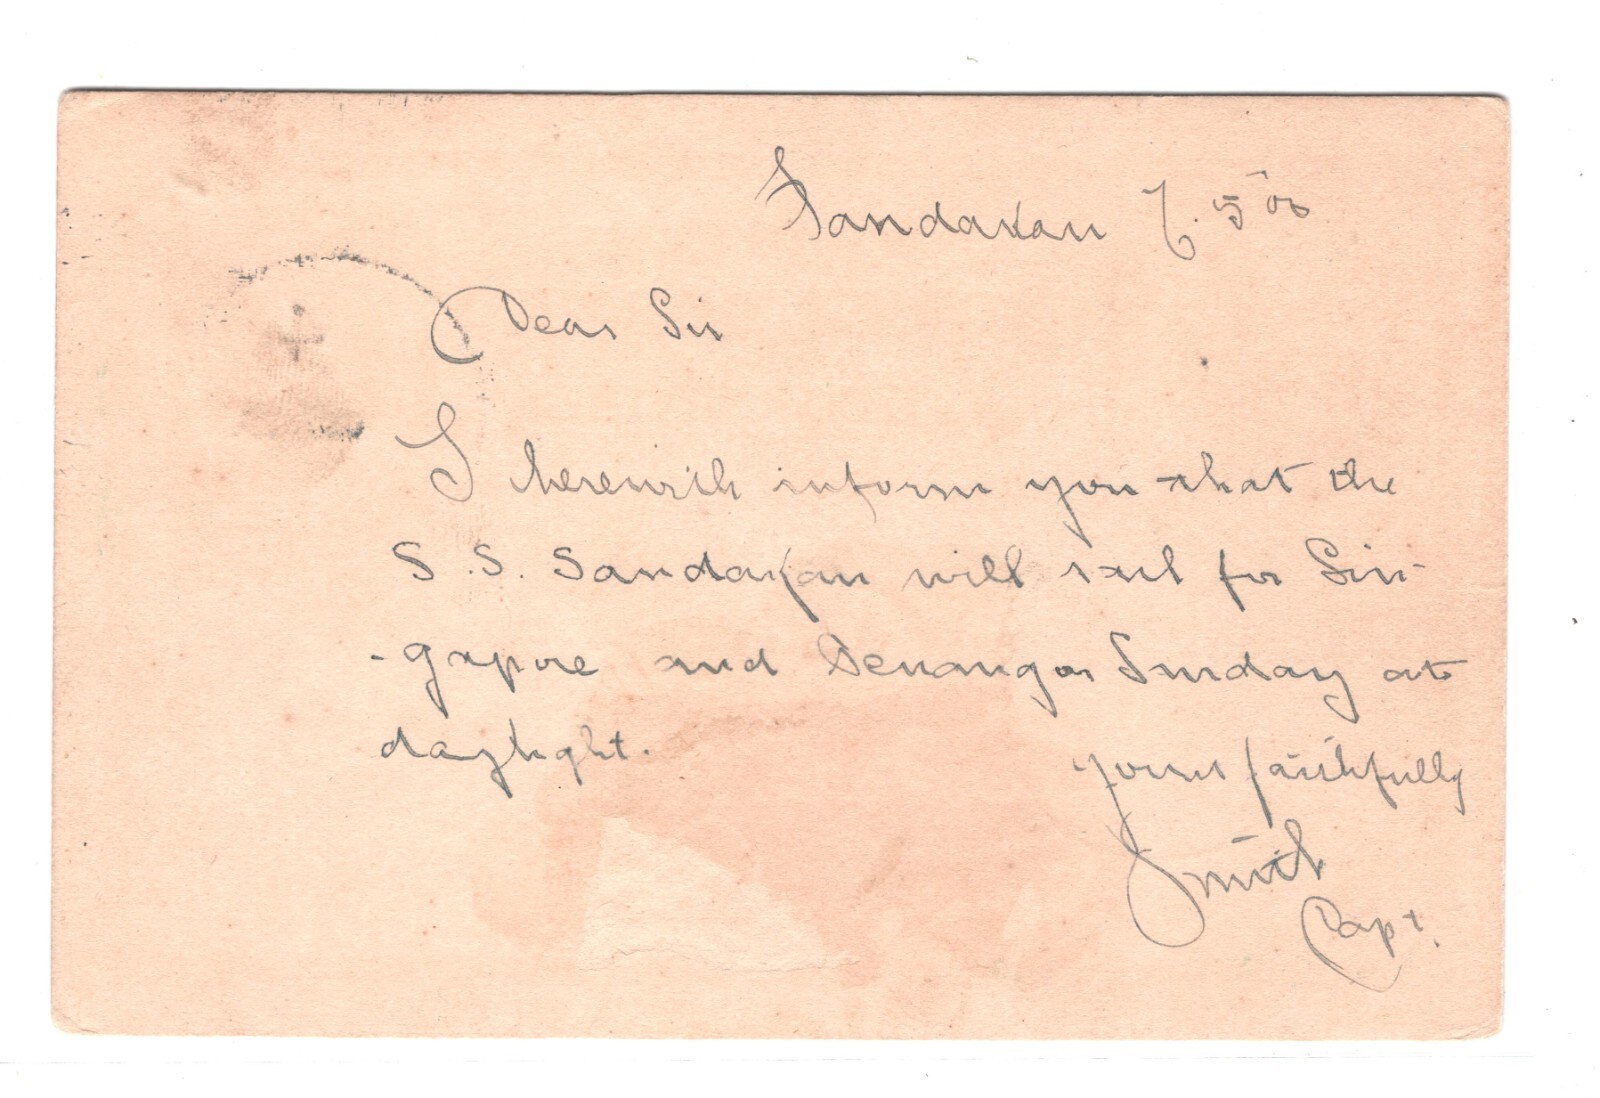 Sandakan 7. 5 00
Dear Sir
I herewith inform you that the
S.S. Sandakan will sail for Sin-
-gapore and Penang on Sunday at
daylight.
yours faithfully
Smith
Capt.